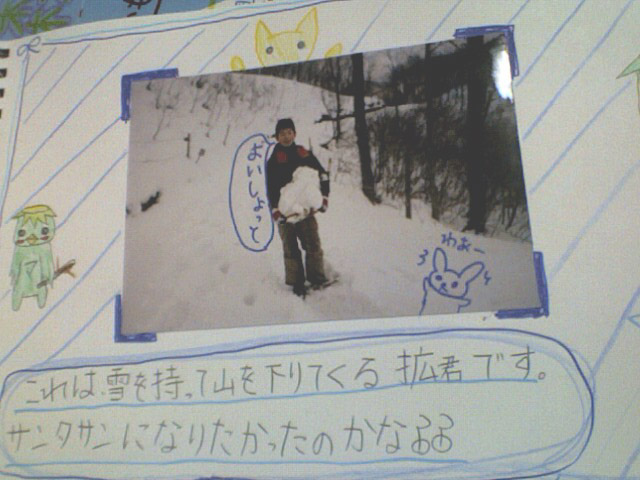 よいしょっと
わぁー
これは雪を持って山を下りてくる拡君です。
サンタサンになりたかったのかな